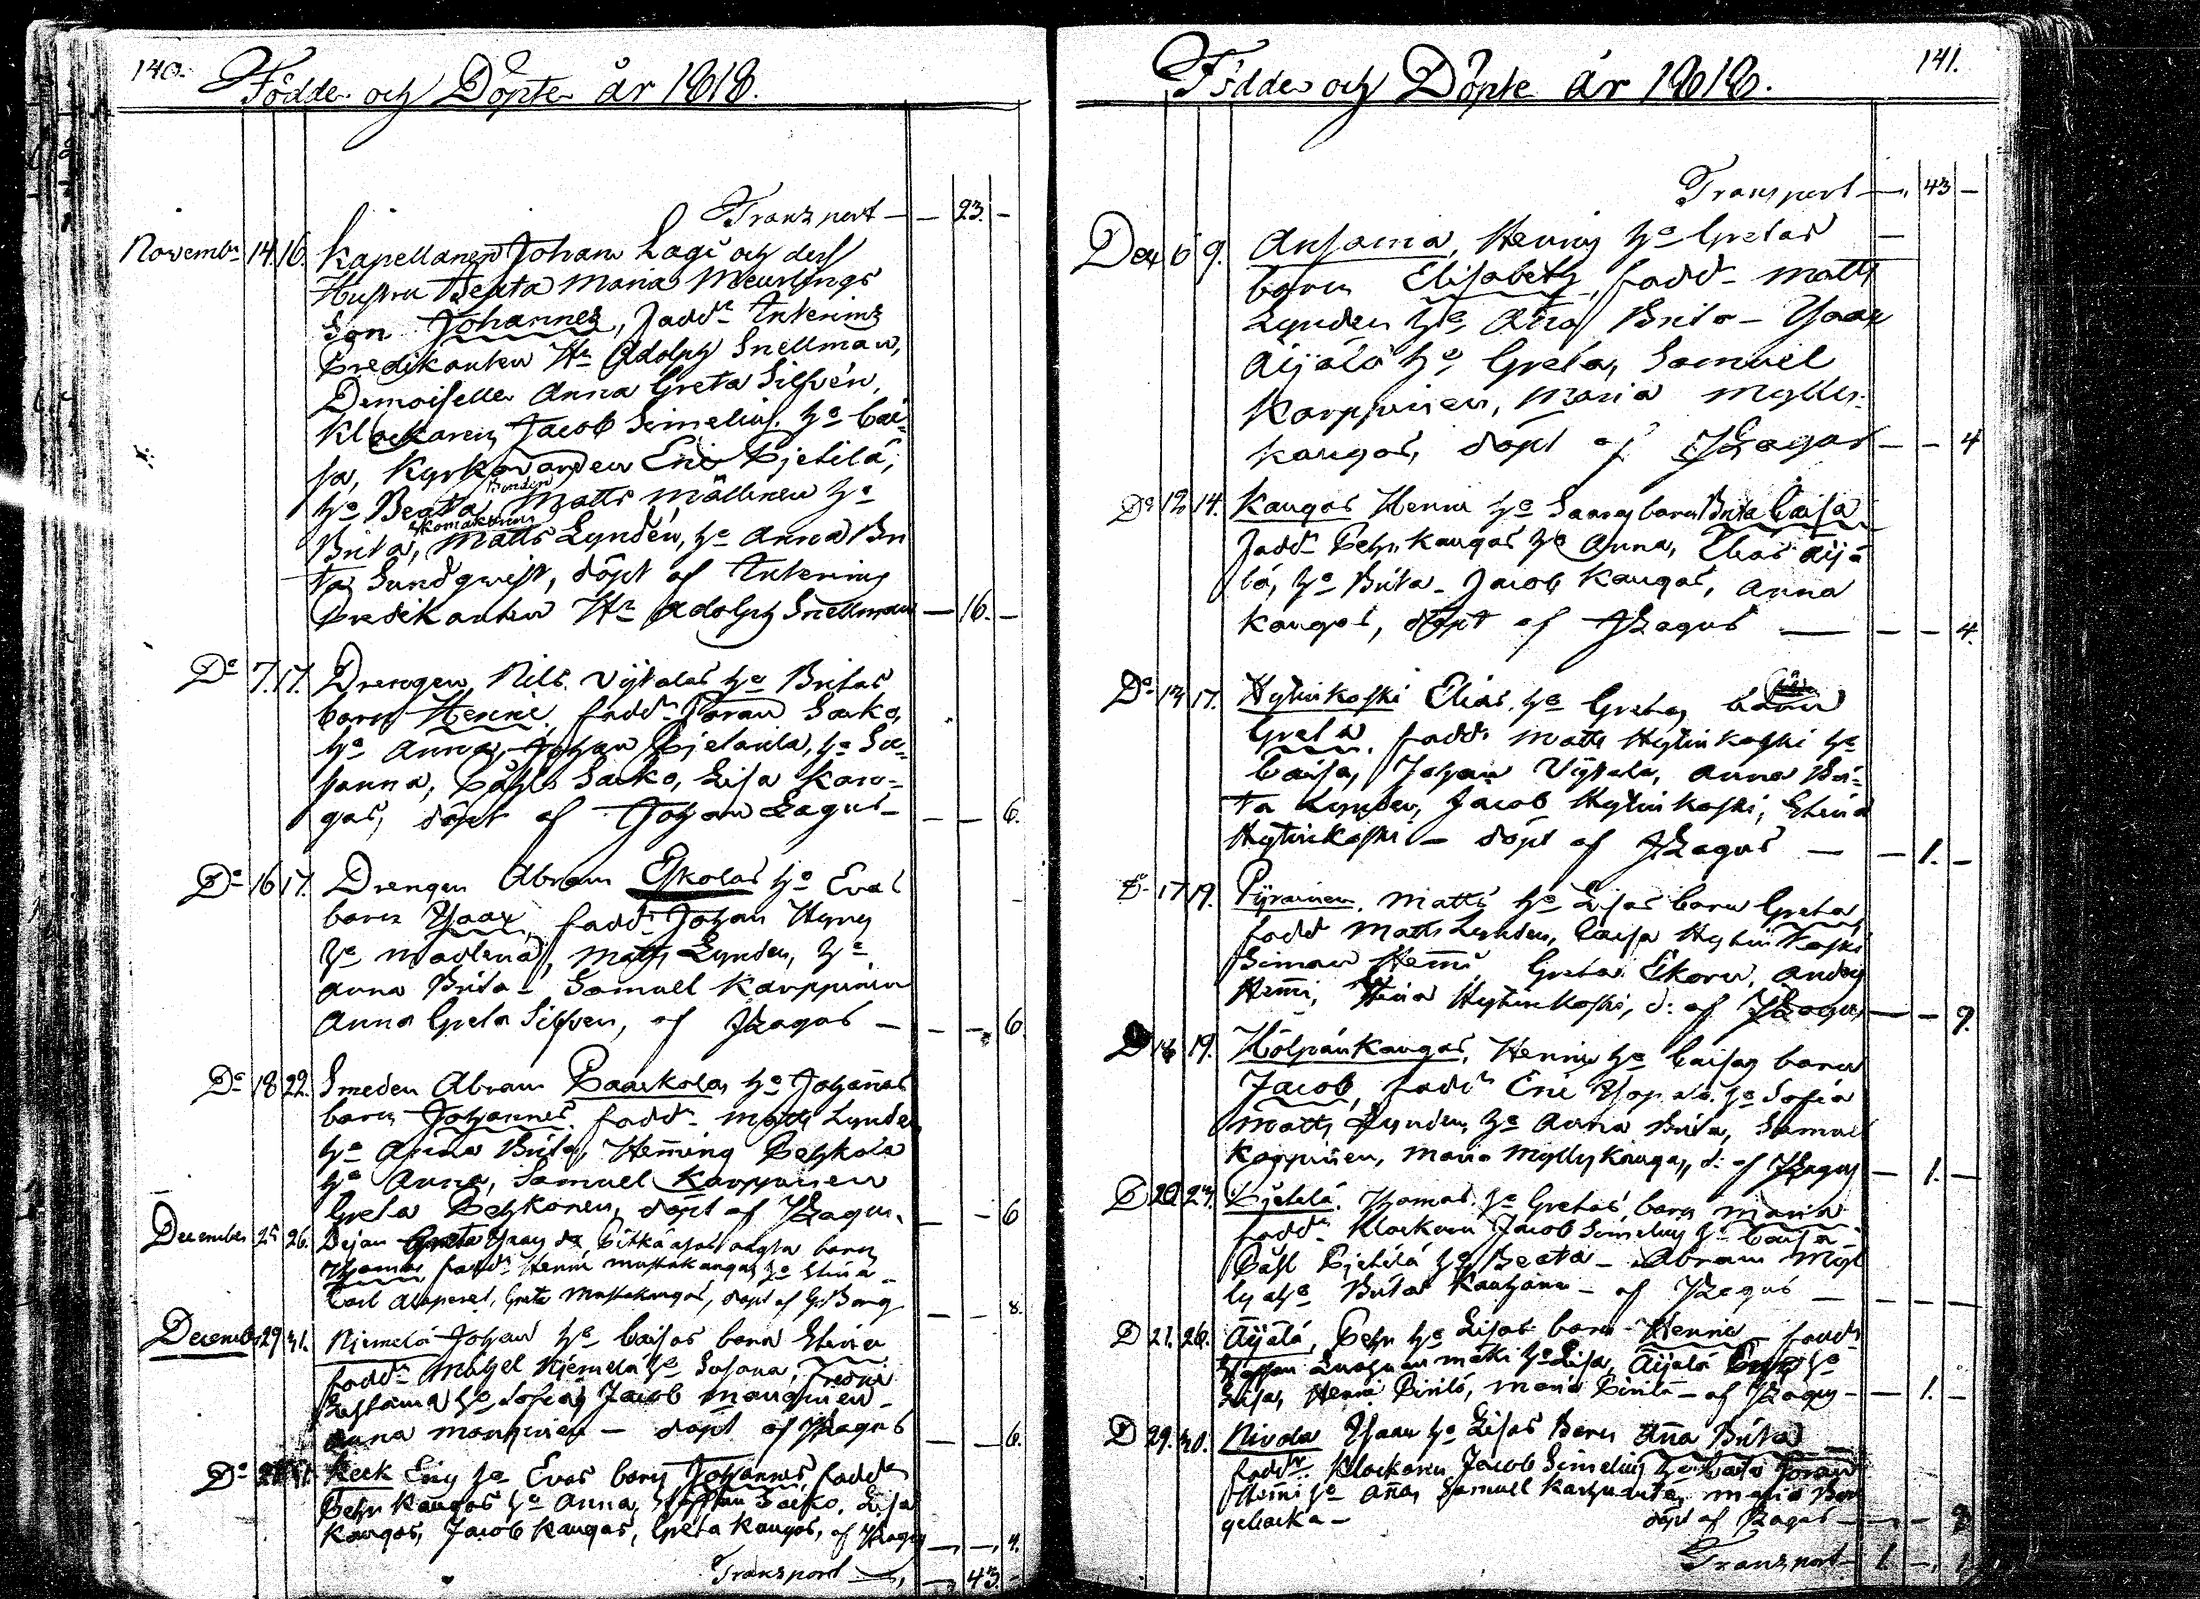 140.
Födde och Döpte år 1818.
Transport — — 23. —
Novembr 14. 16. Kapellanen Johan Lagi och dess
Hustru Beata Maria Meurlings
Son Johannes, fadd: Interims
Predikanten Hr Adolph Snellman,
Demoiselle Anna Greta Silfvén,
Klockaren Jacob Simelius, ho Cai-
sa, Kyrkovärden Eric Pjetilä,
ho Beata, Bonden Matts Mällinen ho
Brita, Skomakaren Matts Lyndén, ho Anna Bri
ta Sundqwist, döpt af Interims
predikanten Hr Adolph Snellman — 16. —
Do 7. 17. Drengen Nils Vijtalas ho Britas
barn Henric, fadd: Göran Sarko,
ho Anna, Johan Pjetarila, ho Su-
sanna, Påhl Sarko, Lisa Kan-
gas, döpt af Johan Lagus — — — 6.
Do 16 17. Drengen Abram Eskolas ho Evas
barn Isaac, fadd: Johan Hyny
ho Madlena, Matts Lynden, ho
Anna Brita — Samuel Karppinen
Anna Greta Silfven, af JLagus — — — 6
Do 18 22. Smeden Abram Paaskolas ho Johannas
barn Johannes, fadd: Matts Lynden
ho Anna Brita, Hemming Pehkola
ho Anna, Samuel Karppinen
Greta Pehkonen, döpt af JLagus. — — 6
December 25 26. Pejan Isaacs Pitkäajas barn
Thomas, fadd: Henric Mustakangas ho Stina —
Carl Greta Mustakangas, döpt af G: Borg — — 8.
December 29 31. Niemelä Johan ho Caisas barn Stina
fadd: Michel Niemelä ho Susana, Fredric
ho Sofia, Jacob Manninen —
Anna Manninen — döpt af JLagus — — 6.
Do 31. Keck Eric ho Evas barn Johannes, fadd:
Pehr Kangas ho Anna, Staffan Sarko, Lisa
Kangas, Jacob Kangas, Greta Kangas, af JLagus — — 4.
Transport — — 43. —
141.
Födde och Döpte år 1818.
Transport — 43 —
Do 6 9. Ansama, Henric ho Gretas —
barn Elisabeth, fadd: Matts
Lynden ho Anna Brita — Isaac
Äijälä ho Greta, Samuel
Karppinen, Maria Mylly-
kangas, döpt af JLagus — — 4
Do 12 14. Kangas Henric ho Saras barn Brita Caisa
fadd: Pehr Kangas ho Anna, Elias Äijä
lä, ho Brita — Jacob Kangas, Anna
Kangas, döpt af JLagus — — — 4.
Do 13 17. Hytinkoski Elias ho Gretas barn
Greta, fadd: Matts Hytinkoski ho
Caisa, Johan Vijtala, Anna Bri-
ta Lynden, Jacob Hytinkoski, Stina
Hytinkoski — döpt af JLagus — — 1. —
Do 17 19. Pyrainen Matts ho Lisas barn Greta,
fadd Matts Lynden, Caisa Hytinkoski
Simon Hemmi, Greta Ekorn, Anders
Hemmi, Stina Hytinkoski, d: af JLagus — — 9.
D 18 19. Hölpänkangas, Henric ho Caisas barn
Jacob, fadd: Eric ho Sofia
Matts Lynden, ho Anna Brita, Samuel
Karppinen, Maria Myllykangas, d: af JLagus — 1. —
D 20 23. Pjetilä, Thomas ho Gretas, barn Maria
fadd: Klockarn Jacob Simelius ho Caisa —
Påhl Pjetilä ho Beata — Abram Myl
lylä ho Brita — af JLagus — — — —
D 21. 26. Äijälä, Pehr ho Lisas barn Henric fadd:
Staffan ho Lisa, Äijälä ho
Lisa, Henric Pirilä, Maria Pirilä — af JLagus — 1. —
D 29. 30. Nivala Isaac ho Lisas Barn Anna Brita
fadd: Klockaren Jacob Simelius ho Caisa Göran
Hemmi ho Anna, Samuel Maria Ber
gebacka — döpt af JLagus —
Transport — 1